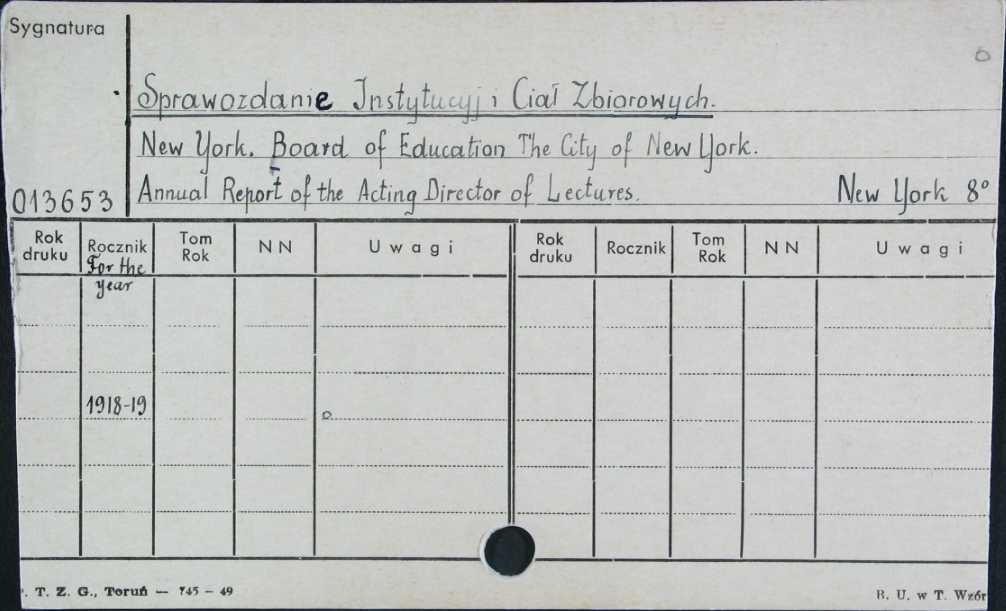 Sygnatura
Sprawozdanie Instytucyj i Ciał Zbiorowych.
New York. Board of Education The City of New York.
013653 Annual Report of the Acting Director of Lectures. New York 8°
Rok druku Rocznik Tom Rok NN Uwagi Rok druku Rocznik Tom Rok NN Uwagi
For the
year
1918-19
T. Z. G., Toruń — 745 – 49 B. U. w T. Wzór